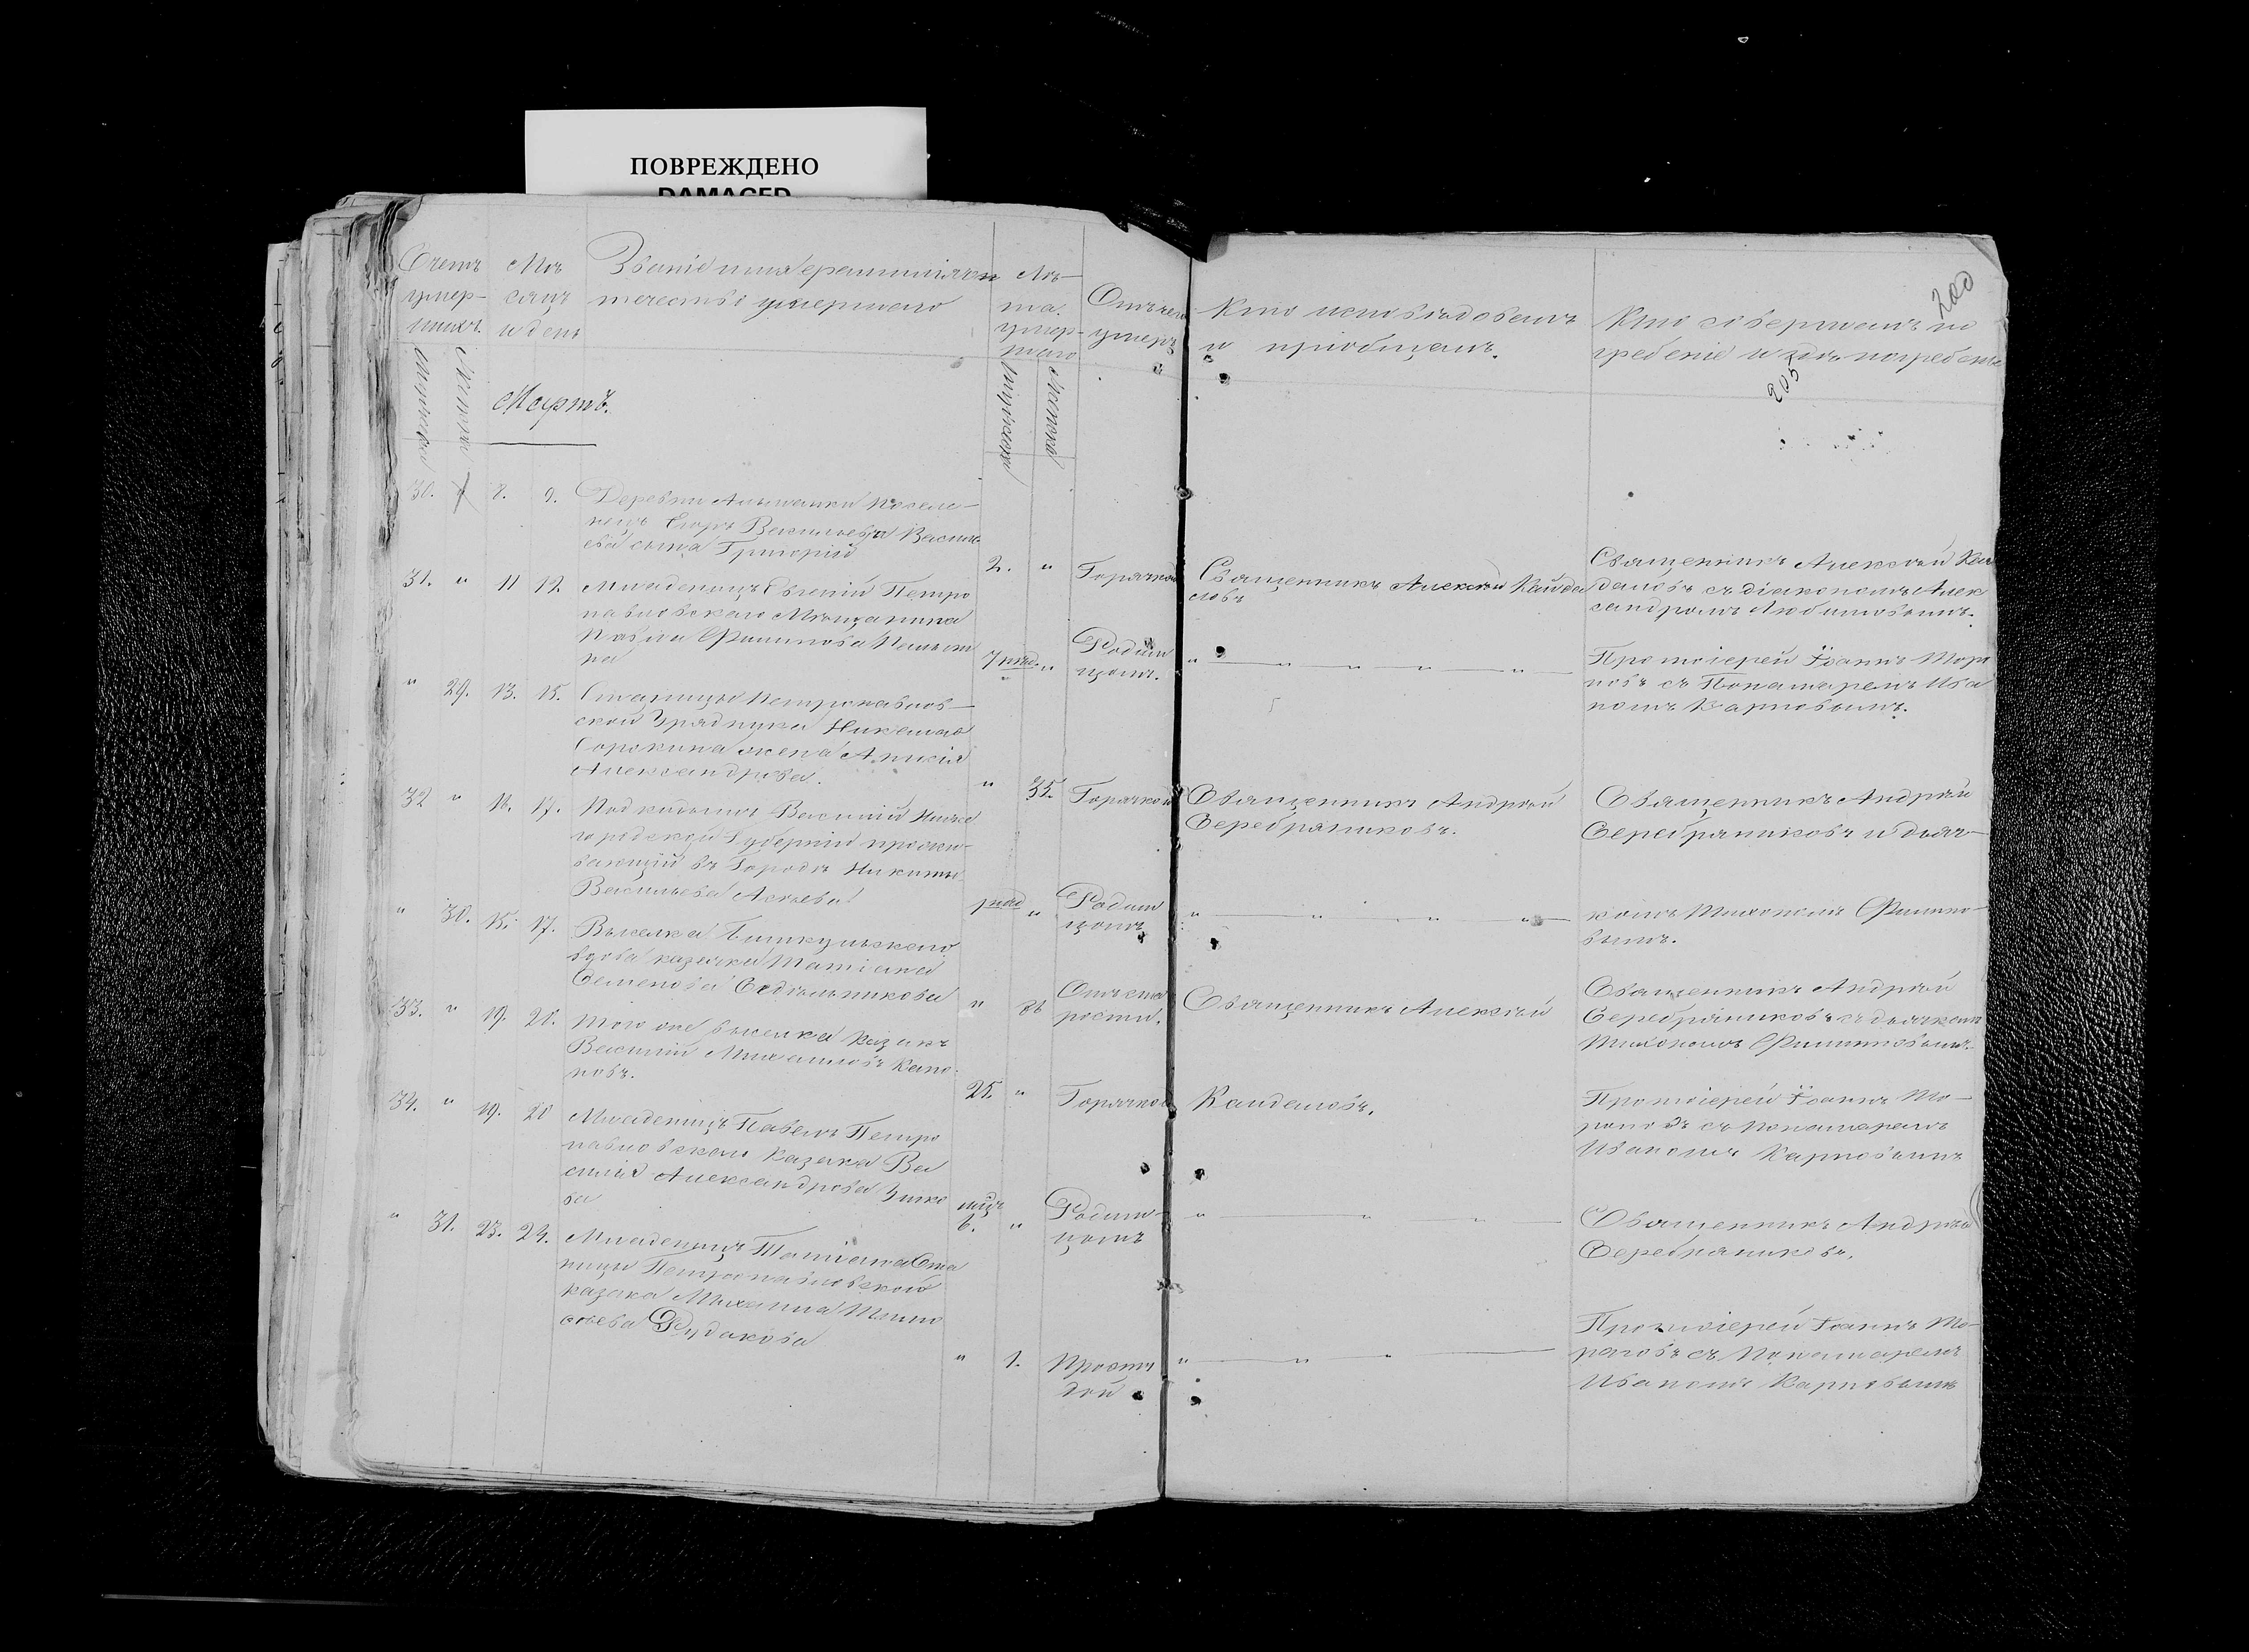 ПОВРЕЖДЕНО
DAMAGED
200
205
Счетъ умер-
шихъ.
Мѣ
сяцъ
и день
Званіе имя
течество умершаго
Лѣ
та
умер-
шаго
Отъ чего
умеръ
Кто исповѣдовалъ
и приобщалъ.
Кто совершалъ по
гребеніе и гдѣ погребены
Мужеска
Женска
Мужескаго
Женскаго
Мартъ.
30. 8. 9. Деревни
Егоръ Васильева Василь
ева сына Григорій
2. " Горячкой
Священникъ Алексѣй Кайда
ловъ
Священникъ Алексѣй Кай
даловъ съ діакономъ Алек
сандромъ Любимовымъ.
31. " 11 12. Младенецъ Евгений Петро
павловскаго Мѣщанина
Павла Филипова
7 " Родим
цомъ.
" " " " "
Протоіерей Іоаннъ
съ Понамаремъ Ива
номъ Карповымъ.
" 29. 13. 15. Станицы Петропавлов-
ской Урядника Николая
Сорокина жена Анисія
Александрова.
" 35. Горячкой
Священникъ Андрей
Серебряниковъ.
Священникъ Андрей
Серебряниковъ и дьяч-
32 " 17. Подкидышъ Василий Ниже
городской Губерніи прожи-
вающій въ Городѣ Никиты
Васильева
" Родим
цомъ
" " " "
комъ Тихономъ Филипо-
вымъ.
" 30. 15. 17. Выселка Бишкульскаго
вдова казачка Татіана
Семенова Седѣльникова
" Отъ ста
рости.
Священникъ Алексѣй
Священникъ Андрей
Серебряниковъ съ дьячкомъ
Тихономъ Филиповымъ.
33. " 19. 20. Того же выселка казакъ
Василий Михаиловъ
новъ.
25. " Горячкой
Кайдаловъ.
Протоіерей Іоаннъ
съ Понамаремъ
Иваномъ Карповымъ
34. " 19. 20 Младенецъ Павелъ Петро
павловскаго казака Ва
силія Александрова Зыко
ва
6. " Родим-
цомъ
" " "
Священникъ Андрей
Серебряниковъ.
" 31. 23. 24. Младенецъ Татіана Ста
ницы Петропавловской
казака Михаила Тимо
феева Рудакова
" 1. Просту
дой
" " "
Протоіерей Іоаннъ
съ Понамаремъ
Иваномъ Карповымъ